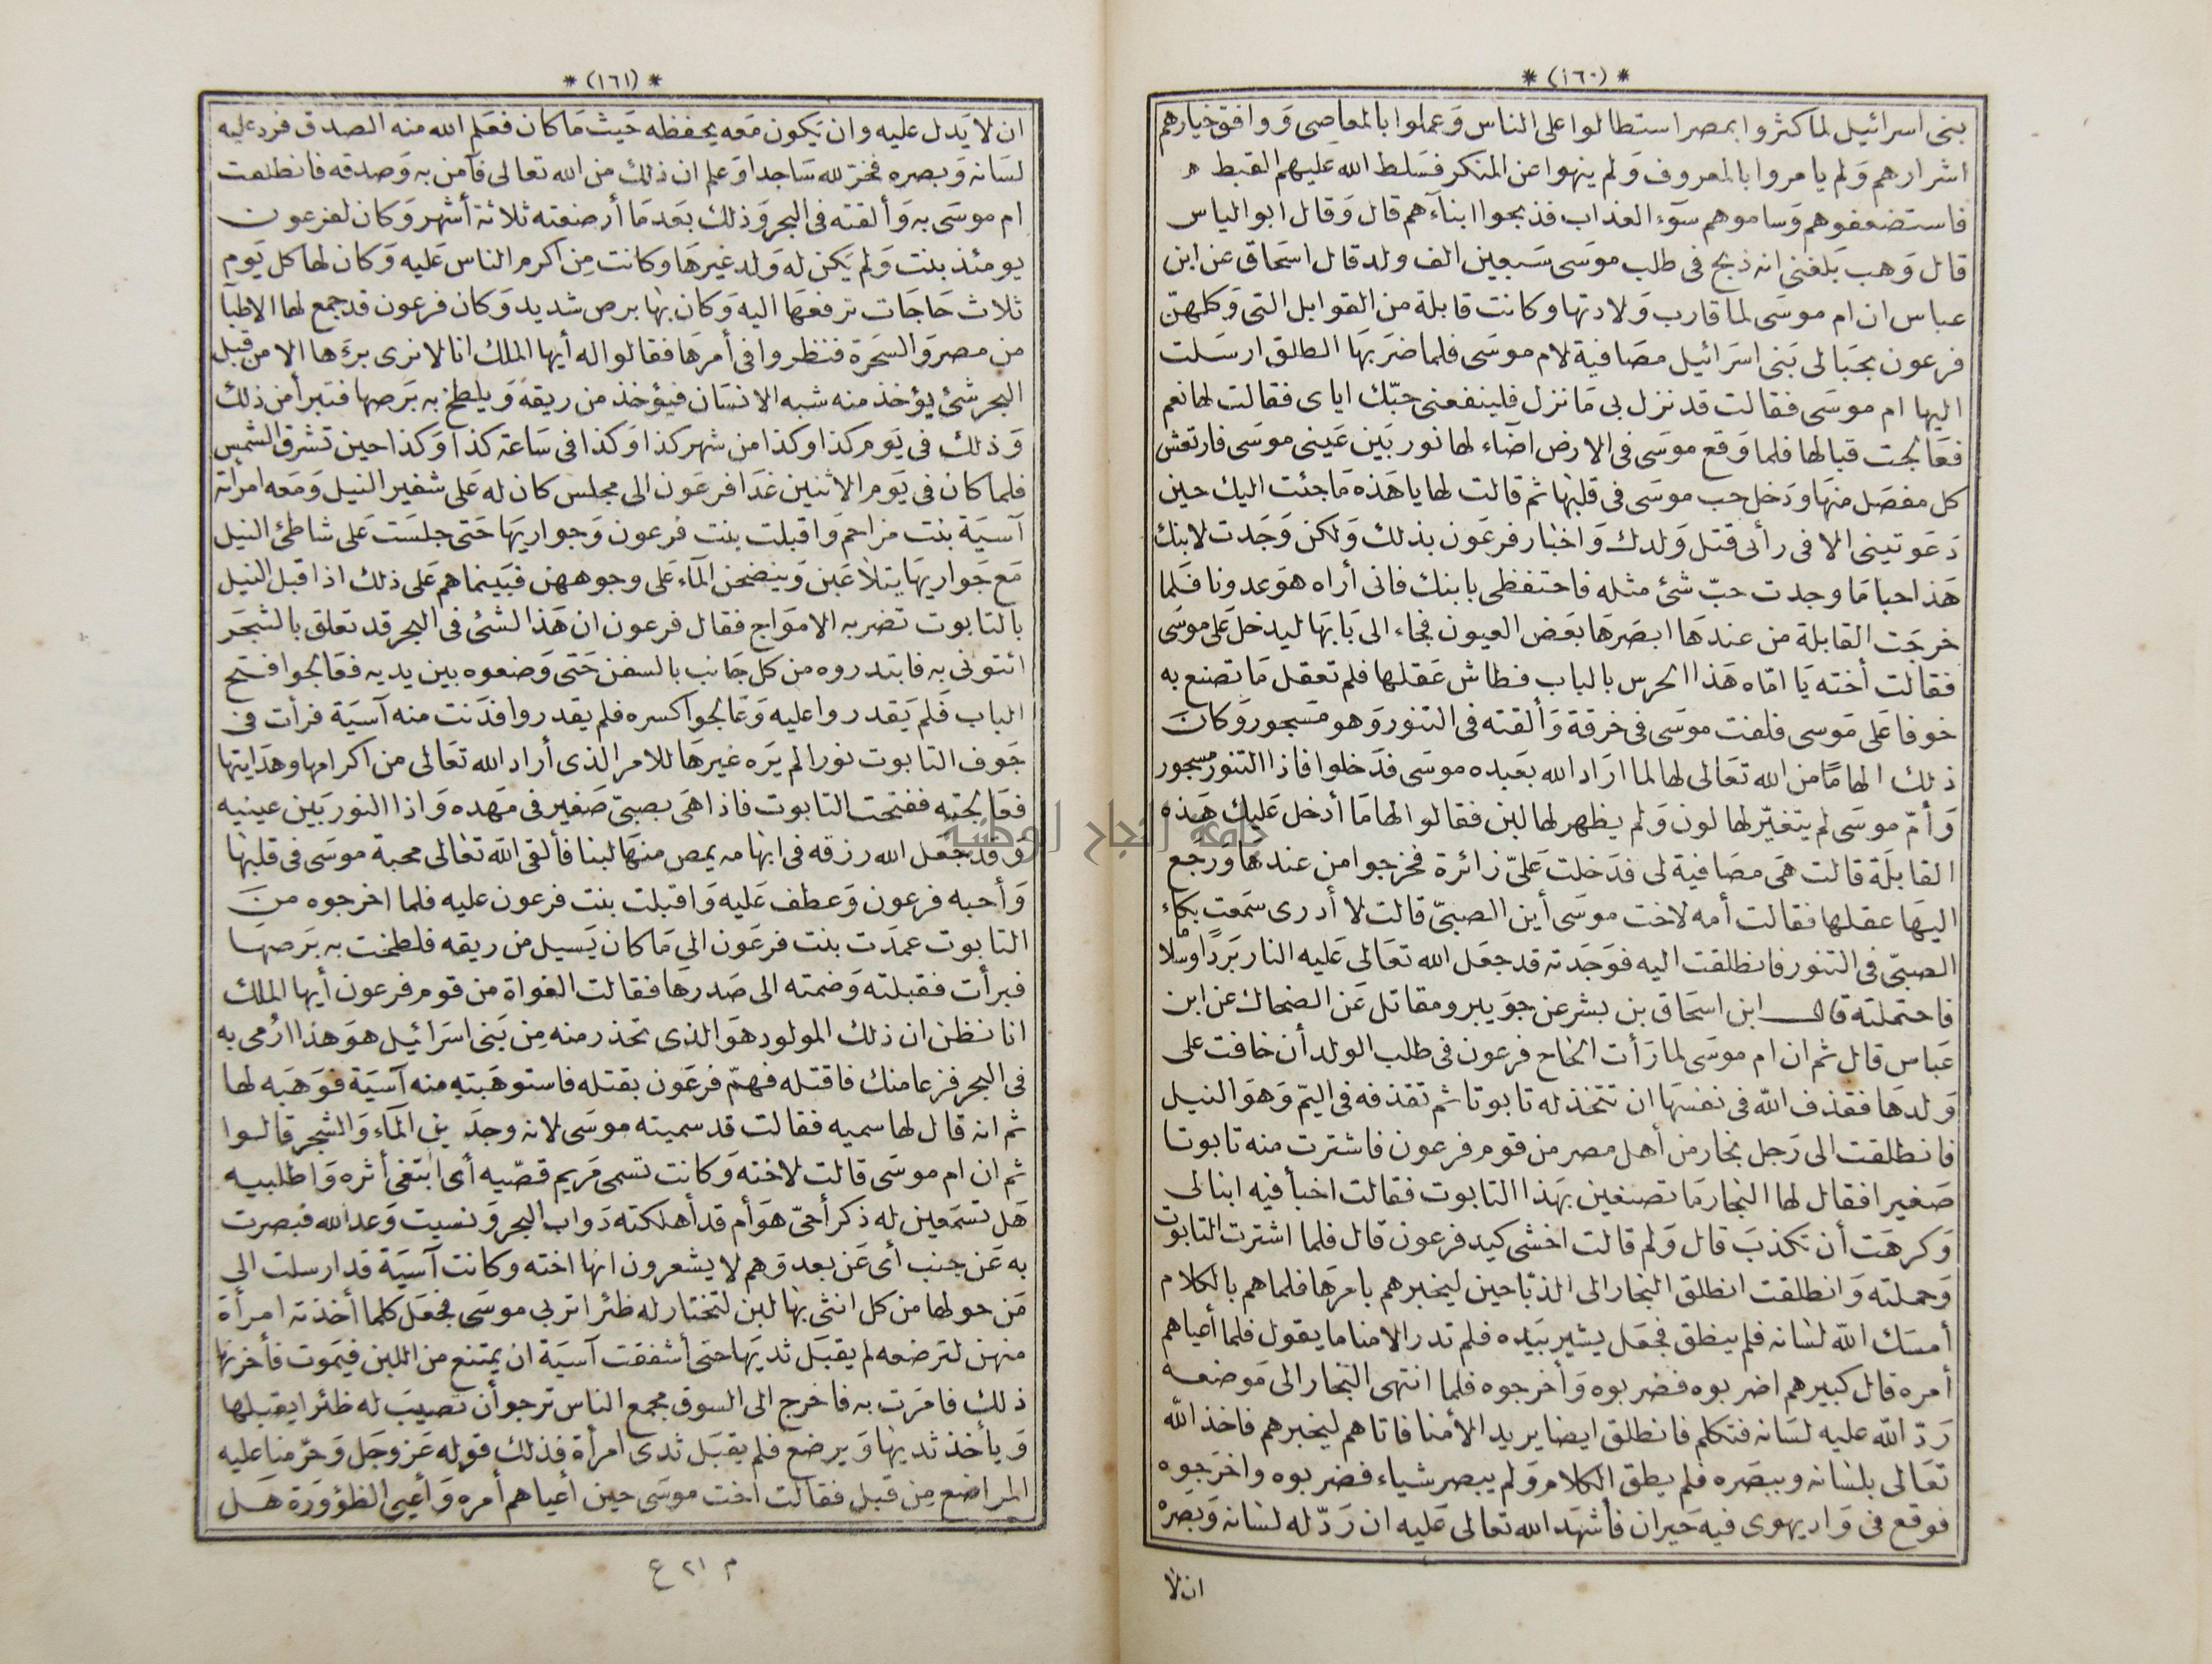 * (١٦٠) *
بنى اسرائيل لما كثروا بمصر استطالوا على الناس وَعملوا بالمعاصى وَوافق خيارهم
اشرارهم وَلم يامروا بالمعروف وَلم ينهوا عن المنكر فسَلط الله عليهم القبط
فاستضعفوهم وَساموهم سوٓء العذاب فذبحوا ابنآءهم قال وَقال ابو الياس
قال وَهب بَلغنى انه ذبح فى طلب موسَى سَبعين الف ولد قال اسحَاق عن ابن
عباس ان ام موسَى لما قارب وَلادتها وكانت قابلة من القوابل التى وَكلهنّ
فرعون بحبَالى بَنى اسرَائيل مصَافية لام موسَى فلما ضرَبهَا الطلق ارسَلت
اليها ام موسَى فقالت قد نزل بى مَا نزل فلينفعنى حبّك اياى فقالت لها نعم
فعَالجت قبالها فلما وَقع موسَى فى الارض اضآء لها نور بَين عَينى موسَى فارتعش
كل مفصَل منهَا وَدَخل حب موسَى فى قلبها ثم قالت لها يا هَذه مَا جئت اليك حين
دَعَوتينى الا فى رأى قتل وَلدك وَاخبار فرعَون بذلك وَلكن وَجَدت لابنك
هَذا حبا مَا وجدت حبّ شئ مثله فاحتفظى بابنك فانى أراه هوَ عدونا فَلما
خرجَت القابلة من عندهَا ابصَرهَا بعَض العيون فجاء الى بَابهَا ليدخل عَلى موسَى
فقالت أخته يَا امّاه هَذا الحرس بالباب فطاش عَقلها فلم تعقل مَا تصنع به
خوفا عَلى مَوسى فلفت موسَى فى خرقة وَألقته فى التنور وَهو مَسجور وَكانَ
ذلك الهامًا من الله تعَالى لها لما ارَاد الله بعَبده موسَى فدَخلوا فاذا التنور مسجور
وَأمّ موسَى لم يتغيّر لها لون وَلم يظهر لها لبن فقالوا لها مَا أدخل عَليك هَذه
القابلَة قالت هىَ مصَافية لى فدَخلت عَلىّ زائرة فخرجوا من عندها وَرجع
اليهَا عقلها فقالت أمه لاخت موسَى أين الصبىّ قالت لا أدرى سَمعَت بكاء
الصبىّ فى التنور فانطلقت اليه فوَجَدته قد جعَل الله تعَالى عَليه النار بَردًا وسلاما
فاحتملته قال ابن اسحَاق بن بشر عن جوَيبر ومقاتل عَن الضحاك عن ابن
عَباس قال ثم ان ام موسَى لما رَأت الحاح فرعون فى طلب الولد أن خافت على
وَلدهَا فقذف اللّه فى نفسهَا ان تتخذ له تابوتا ثم تقذفه فى اليمّ وَهوَ النيل
فانطلقت الى رَجل نجار من أهل مصر من قوم فرعون فاشترت منه تابوتا
صَغيرا فقال لها النجار مَا تصنعين بهَذا التابوت فقالت اخبأ فيه ابنا لى
وَكرهَت أن تكذبَ قال وَلم قالت اخشى كيد فرعون قال فلما اشترت التابوت
وَحملته وَانطلقت انطلق النجار الى الذبّاحين ليخبرهم بامرهَا فلما هم بالكلام
أمسَك اللّه لسَانه فلم ينطق فجعَل يشير بيَده فلم تدر الامنا ما يقول فلما أعياهم
أمره قال كبيرهم اضربوه فضربوه وَأخرجوه فلما انتهى النجار الى مَوضعه
رَدّ اللّه عليه لسَانه فتكلم فانطلق ايضا يريد الأمنا فاتاهم ليخبرهم فاخذ اللّه
تعَالى بلسَانه وببصَره فلم يطق الكلام وَلم يبصر شياء فضربوه واخرَجوه
فوقع فى وَاد يهوى فيه حَيران فأشهَد الله تعالى عَليه ان رَدّ له لسَانه وَبصره
ان لا
* (١٦١) *
ان لا يَدل عليه وان يَكون مَعه يحفظه حَيث مَا كان فعَلم الله منه الصدق فرد عليه
لسَانه وَبصره فخرّ لله سَاجدا وَعلم ان ذلك من الله تعالى فآمن به وَصدقه فانطلقت
ام موسَى به وَألقته فى البحر وَذلك بعَد مَا أرضعته ثلاثة أشهر وَكان لفرعون
يومئذ بنت وَلم يَكن له وَلد غيرهَا وكانت مِن اكرم الناس عَليه وَكان لها كل يَوم
ثلاث حَاجَات ترفعهَا اليه وَكان بها برص شديد وَكان فرعون قد جمع لها الاطبآ
من مصر وَالسحَرة فنظروا فى أمرهَا فقالوا له أيها الملك انا لا نرى برءَها الا من قبل
البحر شئ يؤخذ منه شبه الانسَان فيؤخذ من ريقه وَيلطخ به بَرصها فتبرأ من ذلك
وَذلك فى يَوم كذا وكذا من شهر كذا وَكذا فى سَاعة كذا وَكذا حين تشرق الشمس
فلما كان فى يَوم الاثنين غدَا فرعَون الى مجلس كان له عَلى شفير النيل وَمَعه امرأته
آسيَة بنت مزاحم وَاقبلت بنت فرعون وَجواريهَا حَتى جلسَت عَلى شاطئ النيل
مَع جَواريهَا يتلاعَبن وَينضحن المآء عَلى وجوههن فبَينما هم عَلى ذلك اذ اقبل النيل
بالتابوت تضربه الامَواج فقال فرعون ان هَذا لشئ فى البحر قد تعلق بالشجَر
ائتونى به فابتدروه من كل جَانب بالسفن حَتى وَضعوه بين يديه فعَالجوا فتح
الباب فَلم يَقدروا عليه وَعَالجوا كسره فلم يقدروا فدَنت منه آسيَة فرأت فى
جَوف التابوت نورا لم يَره غيرهَا للامر الذى أراد الله تعَالى من اكرامها وهدَايتها
فعَالجته ففتحت التابوت فاذا هىَ بصبىّ صَغير فى مَهده وَاذا النور بَين عينيه
وَقد جعَل الله رزقه فى ابهامه يمص منهَا لبنا فألقى اللّه تعالى محبة موسَى فى قلبها
وَأحبه فرعون وَعطف عَليه وَاقبلت بنت فرعون عليه فلما اخرجوه منَ
التابوت عمدَت بنت فرعَون الى مَا كان يَسيل من ريقه فلطخت به بَرصهَا
فبرأت فقبلته وَضمته الى صَدرهَا فقالت الغواة من قوم فرعون أيها الملك
انا نظن ان ذلك المولود هوَ الذى تحذر منه مِن بَنى اسرَائيل هوَ هَذا ارُمى به
فى البحر فزعا منك فاقتله فهمّ فرعَون بقتله فاستوهَبته منه آسيَة فوَهَبه لها
ثم انه قال لها سميه فقالت قد سميته موسَى لانه وجدَ بين المَآء وَالشجر قالوا
ثم ان ام موسَى قالت لاخته وَكانت تسمى مَريم قصّيه أى ابتغى أثره وَاطلبيه
هَل تسمَعين له ذكر أحىّ هوَ أم قد أهلكته دَواب البحر وَنسيت وَعد الله فبصرت
به عَن جنب أى عَن بعد وَهم لا يشعرون انها اخته وكانت آسيَة قد ارسلت الى
مَن حولها من كل انثى بها لبن لتختار له ظئرا تربى موسَى فجعَل كلما أخذته امرأة
منهن لترضعه لم يقبَل ثديَها حتى أشفقت آسيَة ان يمتنع من اللبن فيَموت فأحزنها
ذلك فامَرت به فاخرج الى السوق مجمع الناس ترجو أن تصيبَ له ظئرا يقبلها
وَيأخذ ثديها وَيرضع فلم يقبَل ثدى امرأة فذلك قوله عَز وجَل وَحرّمنا عليه
المراضع مِن قبل فقالت اخت موسَى حين أعياهم أمره وَأعيى الظؤورَة هَل
م ٢١ ع
جامعة النجاح الوطنية